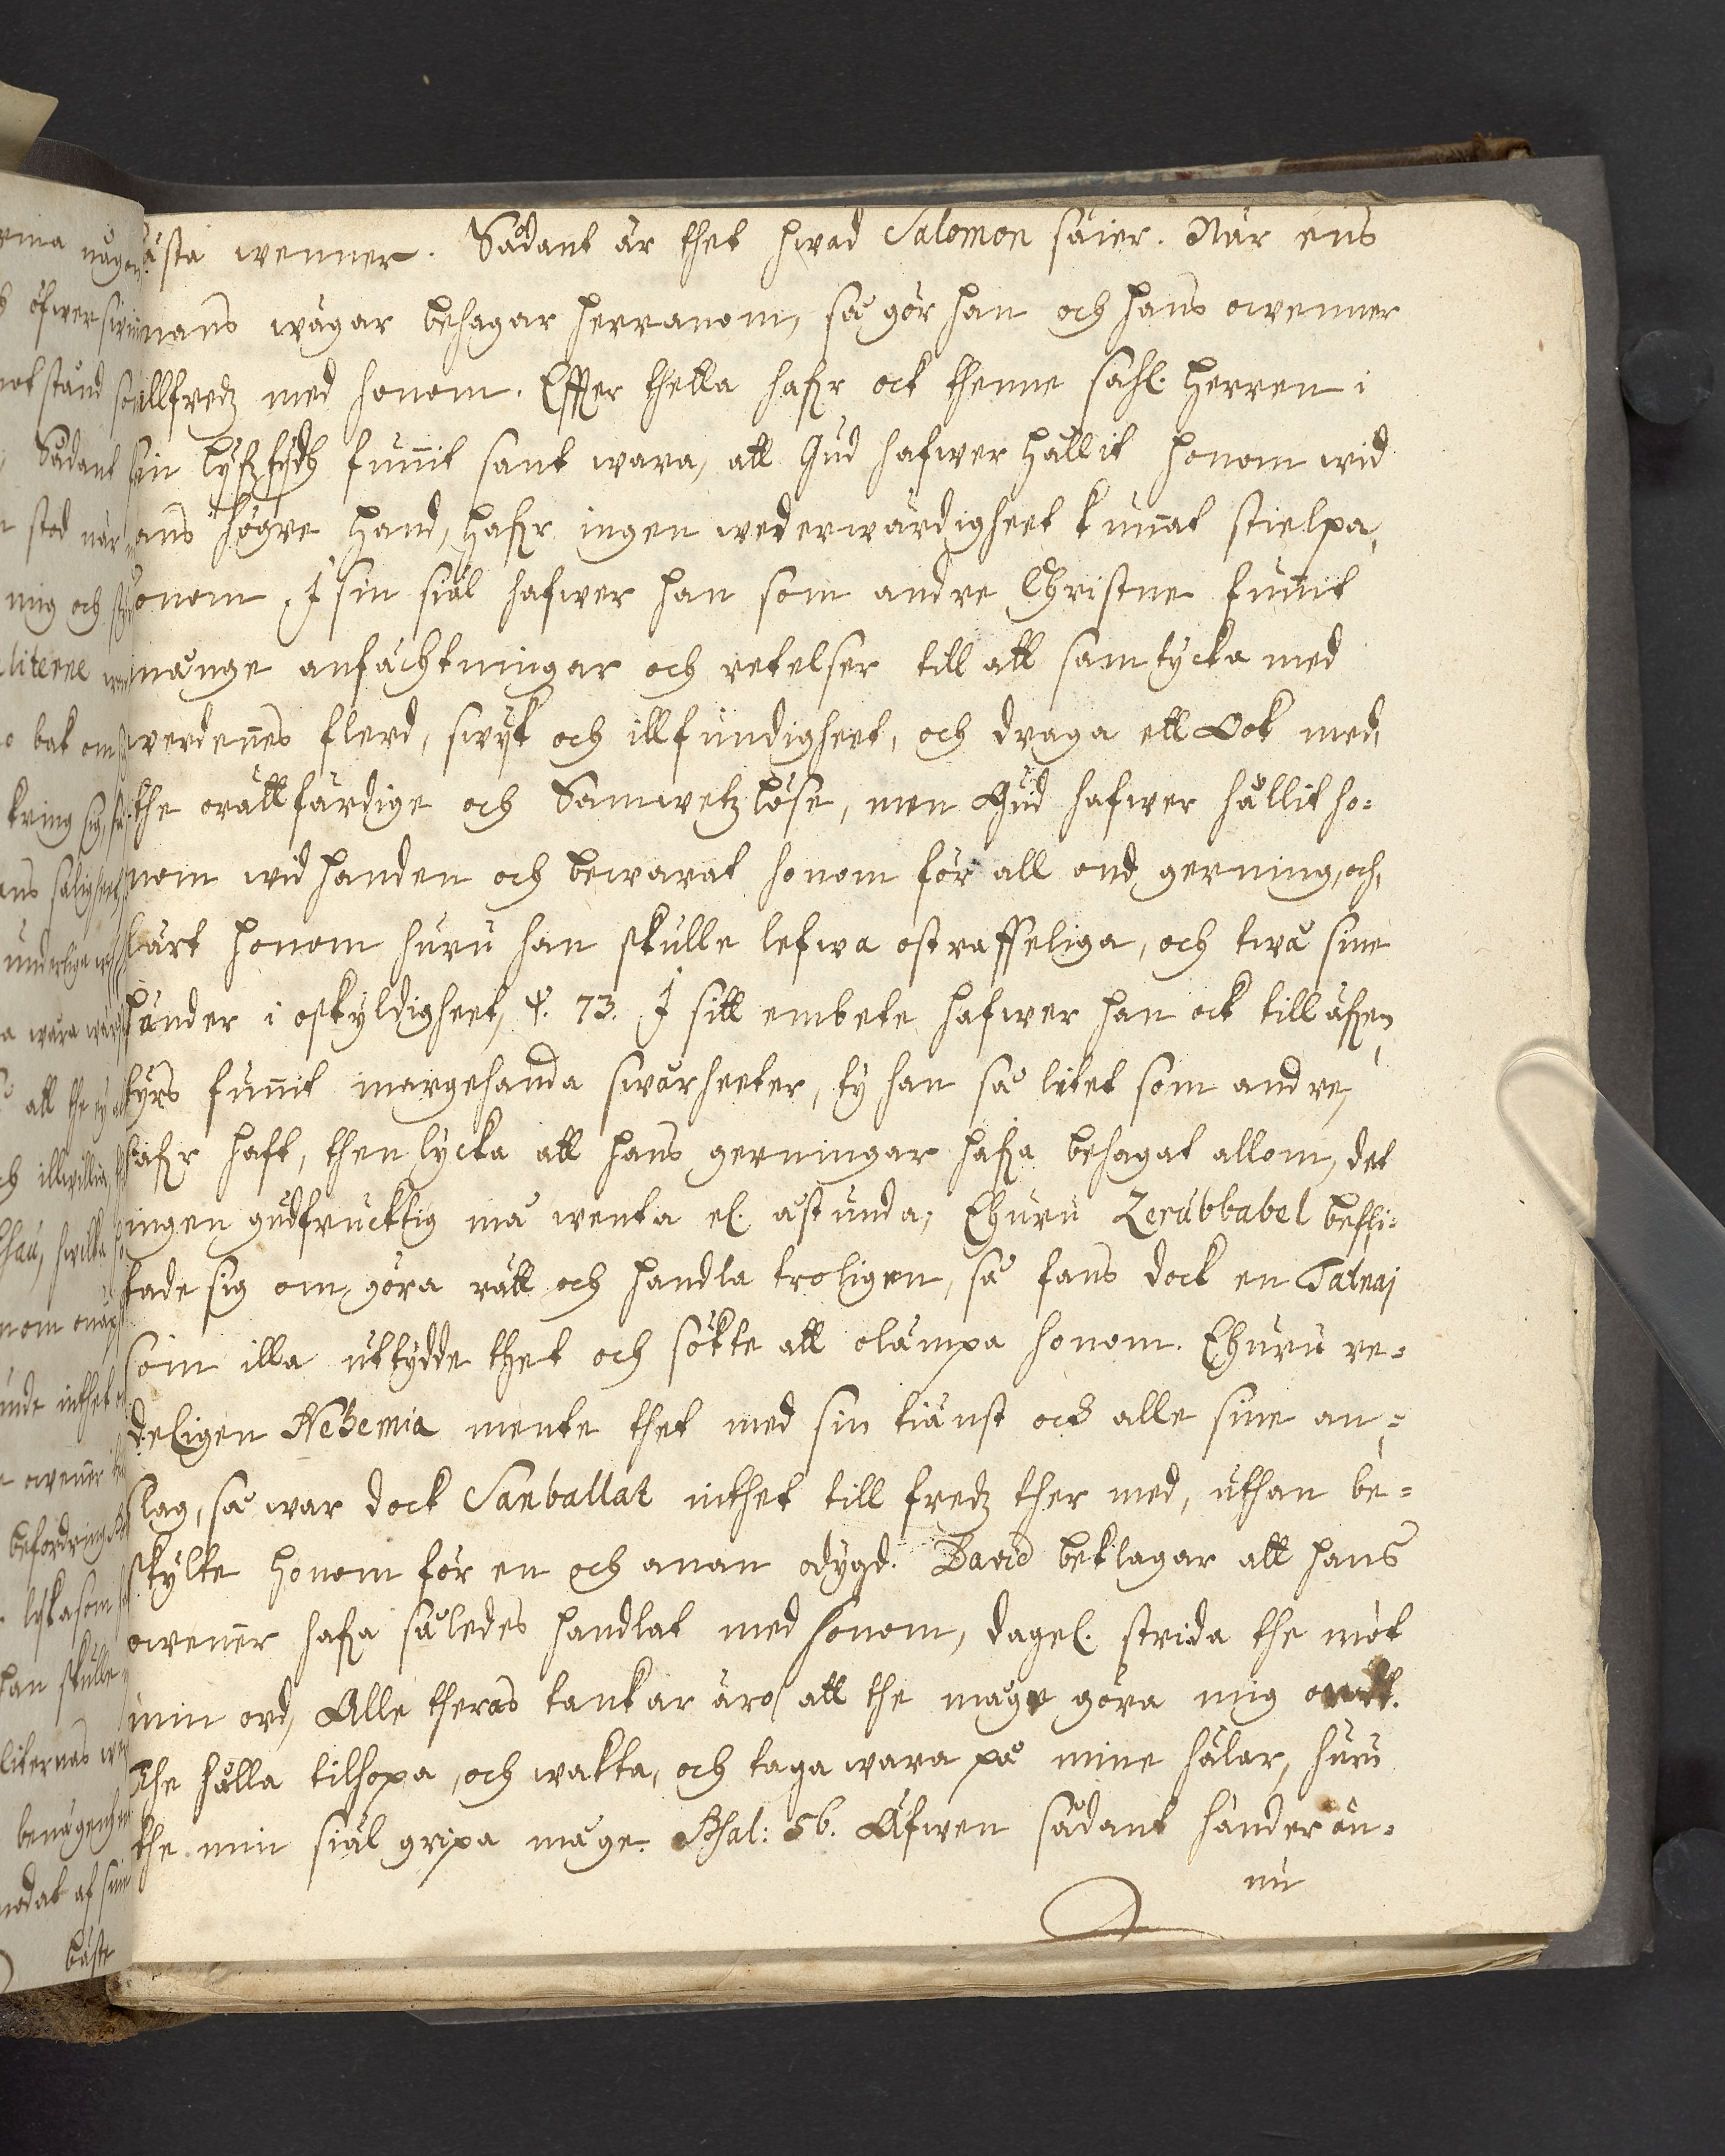 bästa wenner. Sådant är thet hwad Salomon säier. När ens
mans wägar behagar herranom, så gör han och hans owenner
tillfredz med honom. Effter thetta hafr ock thenne sahl. herren i
sin lyfztydh funnit sant wara, att Gud hafwer hållit honom wid
hans högre hand, hafr ingen wederwärdigheet kunnat stielpa,
honom. I sin siäl hafwer han som andre Christne funnit
månge anfächtningar och retelser till att samtycka med
werdennes flerd, swyk och illfundigheet, och draga ett Ook med,
the orättfärdige och Samwetzlöse, men Gud hafwer hållit ho-
nom wid handen och bewarat honom för all ond gerning, och,
lärt honom huru han skulle lefwa ostraffeliga, och twå sine
händer i oskyldigheet, Ψ. 73. I sitt embete hafwer han ock till äfwen
tyrs funnit margehanda swårheeter, ty han så litet som andre,
hafr haft, then lycka att hans gerningar hafa behagat allom, det
ingen gudfrucktig må wenta el. åstunda, Ehuru Zerubbabel befli-
tade sig om, göra rätt och handla troligen, så fans dock en Tatnaj
som illa uttydde thet och sökte att olämpa honom. Ehuru re-
deligen Nehemia mente thet med sin tiänst och alle sine an-
slag, så war dock Sanballat inthet till fredz ther med, uthan be-
skylte honom för en och anan odygd. David beklagar att hans
owenner hafa således handlat med honom, dagel. strida the mot
min ord, Alle theras tankar äro att the måge göra mig ondt.
The hålla tilhopa, och wakta, och taga wara på mine hälar, huru
the min siäl gripa måge. Psal: 56. Äfwen sådant händer än-
nu